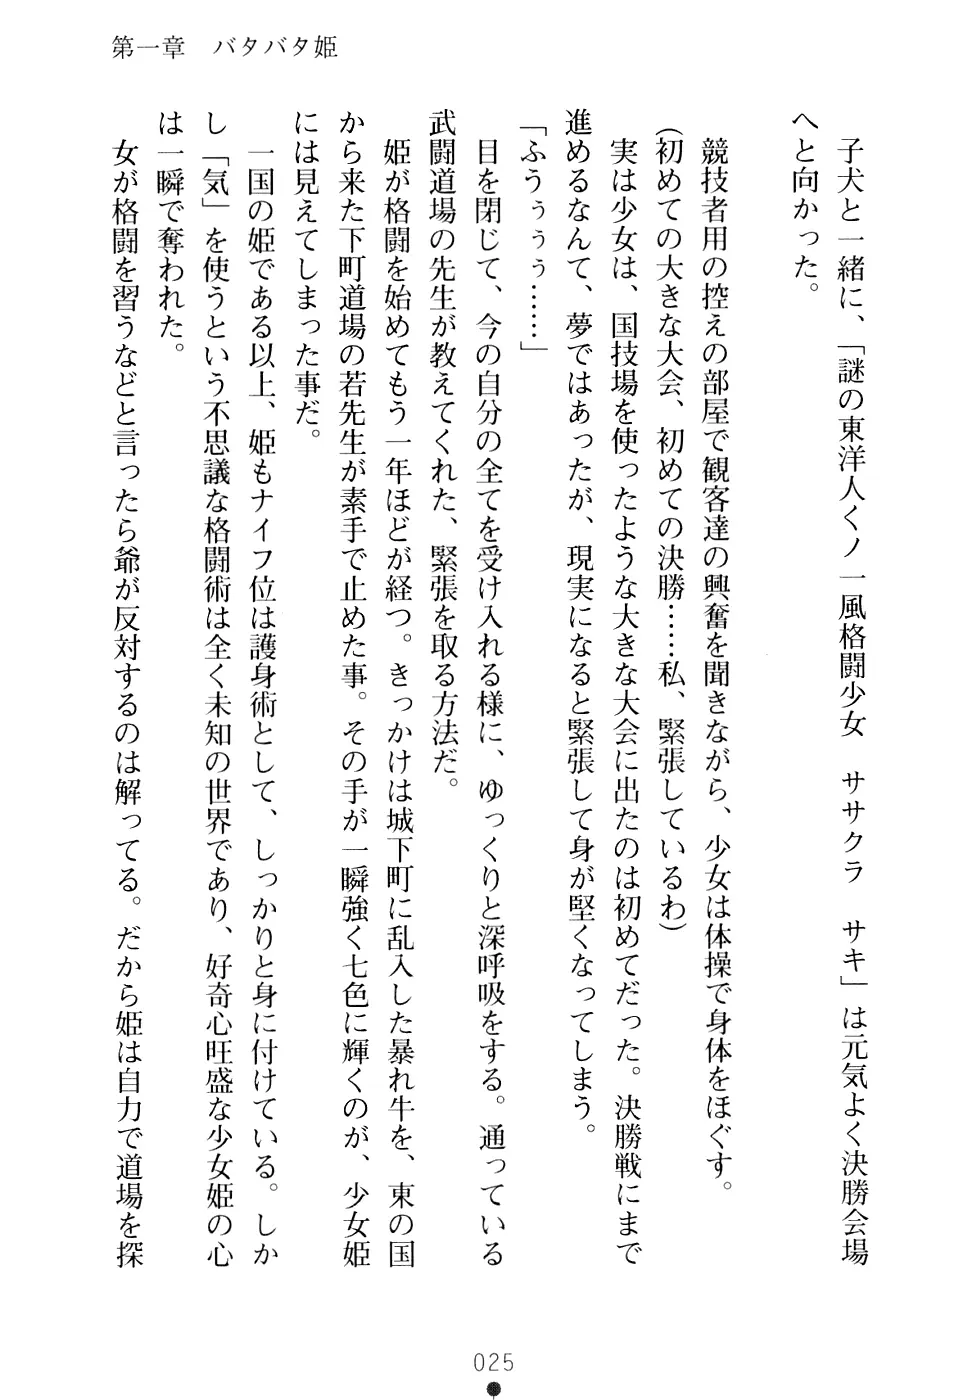 第一章　バタバタ姫
子犬と一緒に、「謎の東洋人くノ一風格闘少女　ササクラ　サキ」は元気よく決勝会場
へと向かった。
競技者用の控えの部屋で観客達の興奮を聞きながら、少女は体操で身体をほぐす。
(初めての大きな大会、初めての決勝……私、緊張しているわ)
実は少女は、国技場を使ったような大きな大会に出たのは初めてだった。決勝戦にまで
進めるなんて、夢ではあったが、現実になると緊張して身が堅くなってしまう。
「ふうぅぅぅ……」
目を閉じて、今の自分の全てを受け入れる様に、ゆっくりと深呼吸をする。通っている
武闘道場の先生が教えてくれた、緊張を取る方法だ。
姫が格闘を始めてもう一年ほどが経つ。きっかけは城下町に乱入した暴れ牛を、東の国
から来た下町道場の若先生が素手で止めた事。その手が一瞬強く七色に輝くのが、少女姫
には見えてしまった事だ。
一国の姫である以上、姫もナイフ位は護身術として、しっかりと身に付けている。しか
し「気」を使うという不思議な格闘術は全く未知の世界であり、好奇心旺盛な少女姫の心
は一瞬で奪われた。
女が格闘を習うなどと言ったら爺が反対するのは解ってる。だから姫は自力で道場を探
025